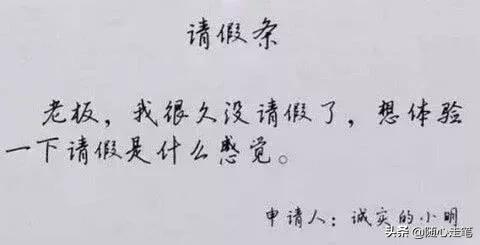 请假条
老板，我很久没请假了，想体验
一下请假是什么感觉。
申请人：诚实的小明
头条 @随心走笔